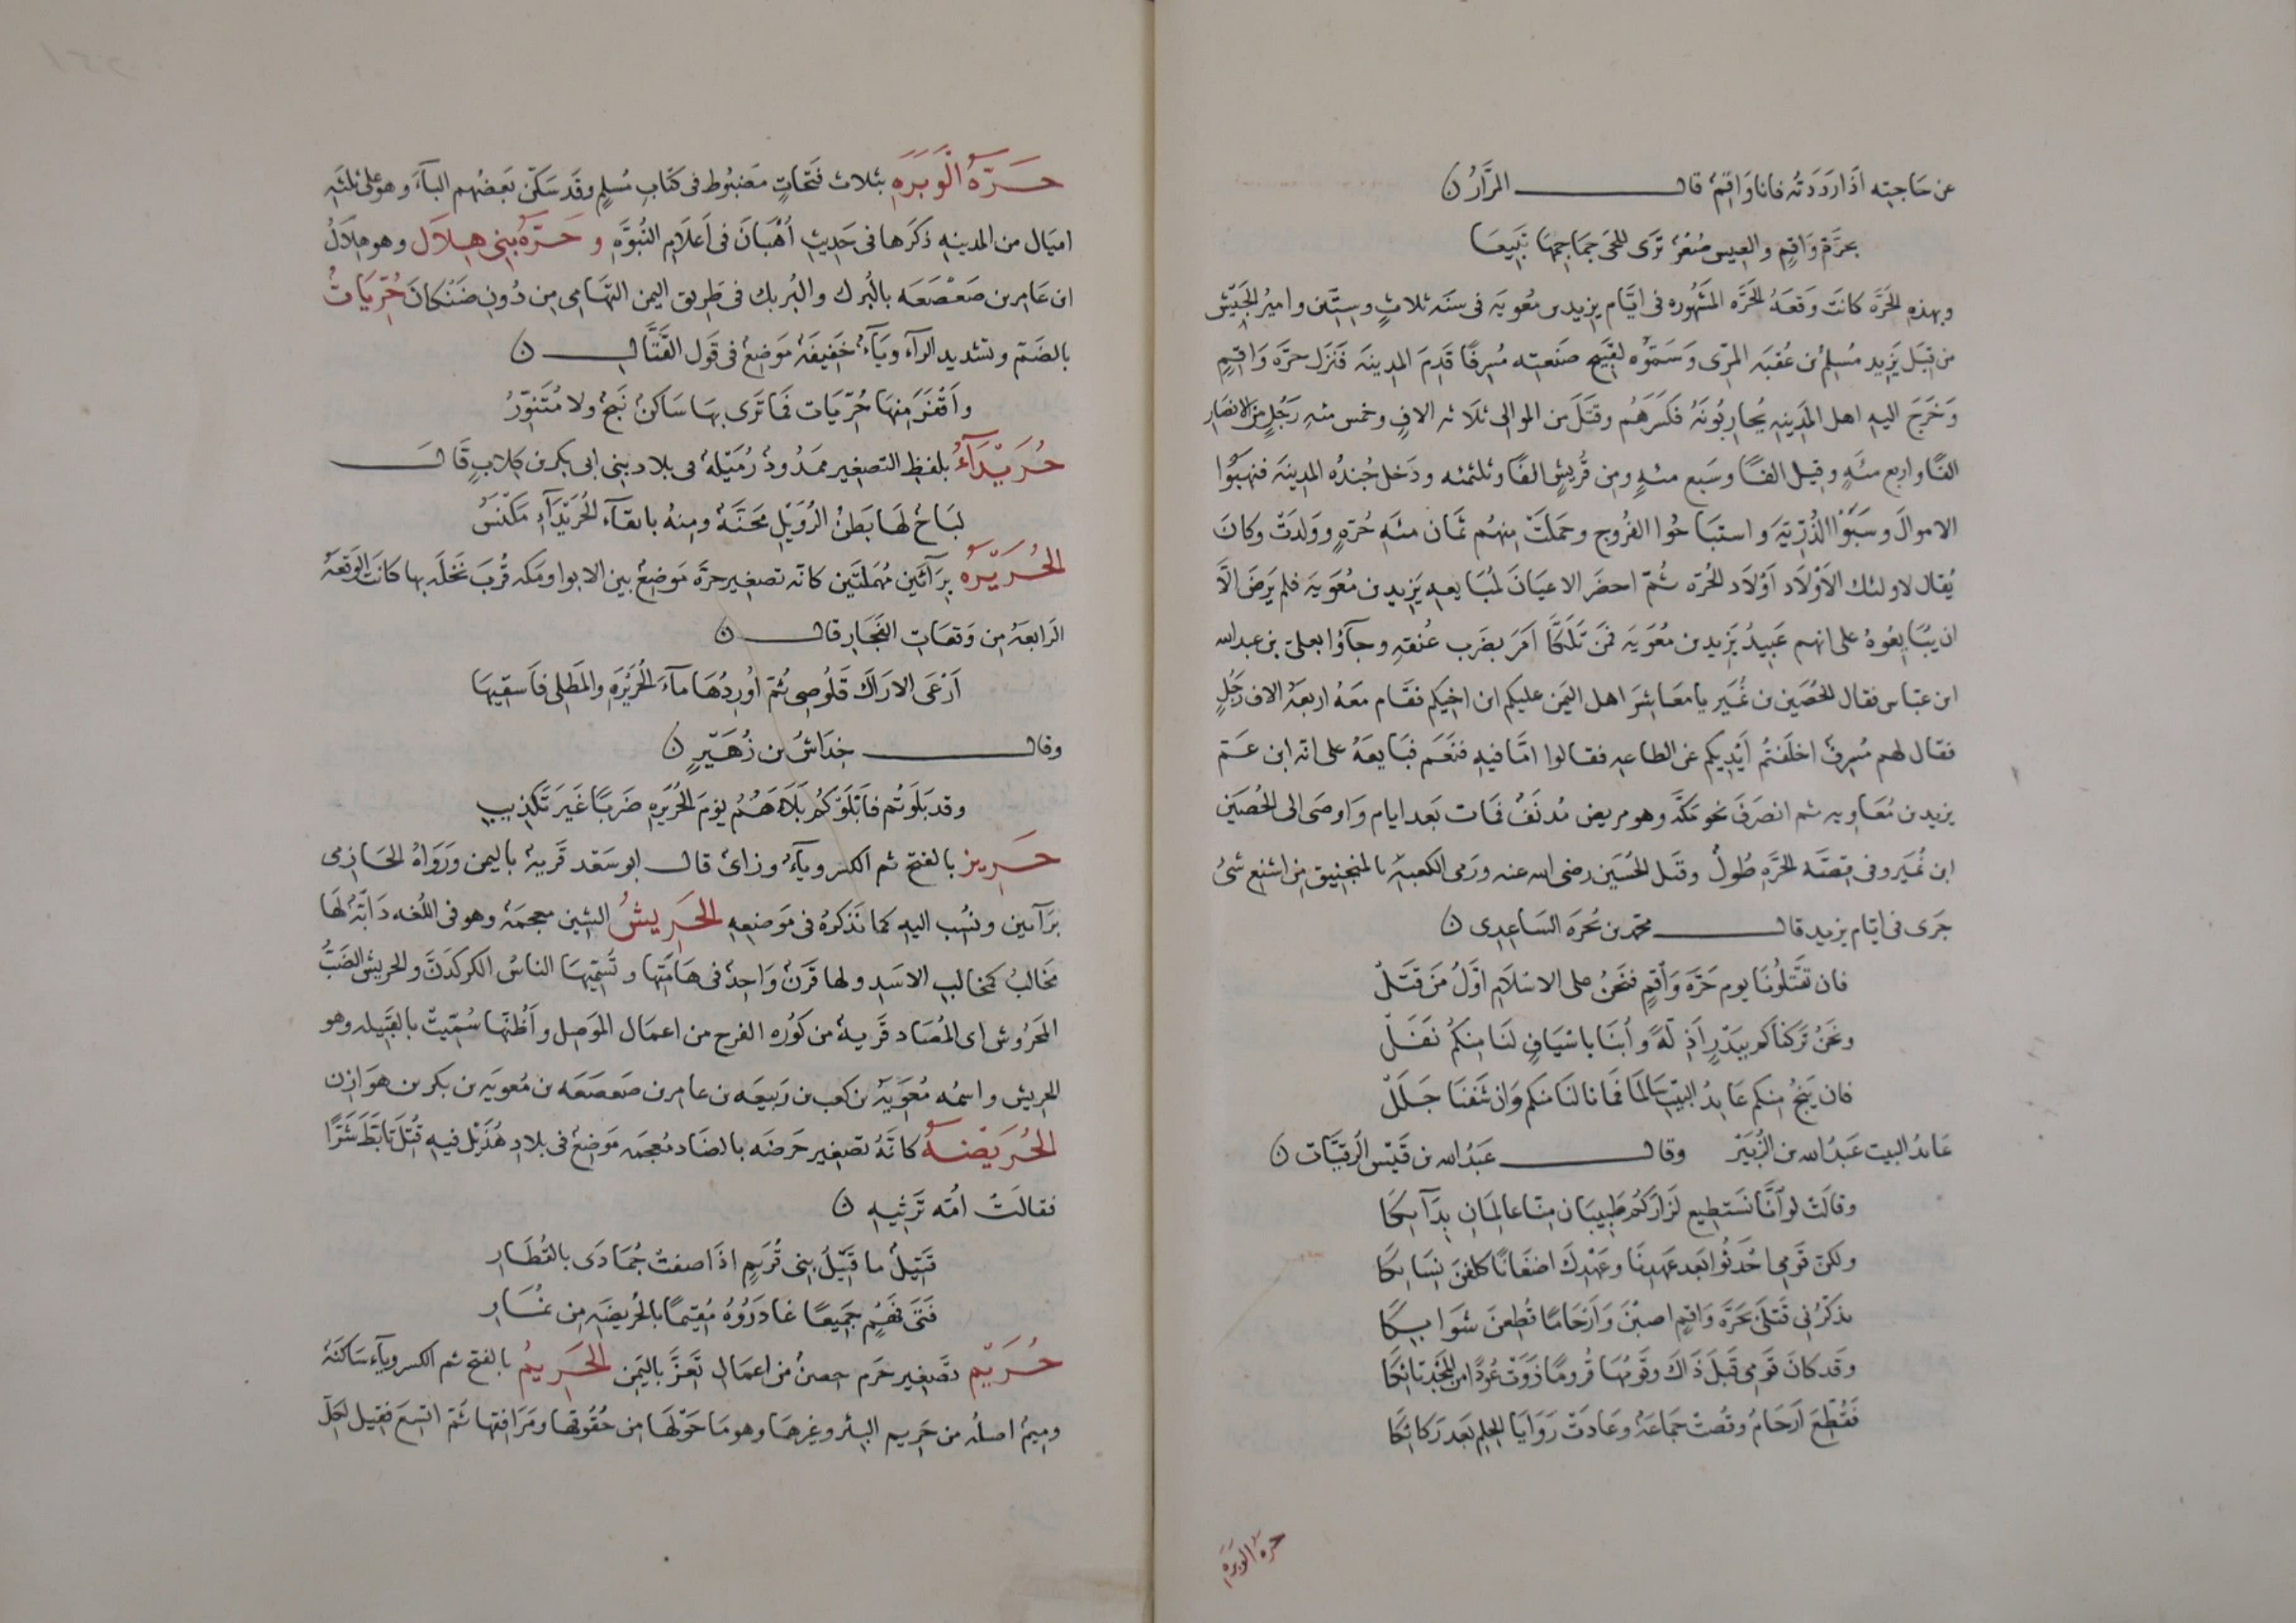 عن حَاجتِه اذَا رَدَدتُه فانا وَاقِمٌ قال المَرَّارُ ن
بحرَّةِ وَاقِمٍ والعِيس صُعْرٌ تَرَى للحَى جَمَاجِمِهَا تَبِيعَا
وبهذِه الحَرَّه كانَت وَقعَةُ الحَرَّه المَشهُوره فى ايَّام يزيد بن مُعٰويَه فى سنَه ثلاثٍ وستِّين وامِيرُ الجَيْش
مِن قِبَل يَزِيد مُسلِمُ بن عُقبَه المرّى وَسَمَّوْه لقبيح صَنَعتِه مُسرِفًا قَدِمَ المدِينَه فَنَزل حرَّه وَاقِمٍ
وَخَرَجَ اليهِ اهل المَدِينهِ يُحارِبُونَهُ فَكَسَرَهُم وقتَلَ من الموالى ثلاثه الافٍ وخمس مئهِ رَجُلٍ ومن الانصَار
الفًا واربع مئَهٍ وقيل الفًا وسَبع مئهٍ ومِن قُريشٍ الفًا وثلثمئه ودَخل جُندُه المدِينَه فنهبُوا
الاموالَ وسَبَوْا الذُرِّيَّةَ واستبَاحُوا الفُروج وحمَلَتْ مِنهُم ثَمان مئَهِ حُرّهٍ ووَلدَتْ وكان
يُقال لاولئك الاَوْلَاد اَوْلَاد الحَرّه ثُمّ احضَر الاعيَانَ لمُبَايعهِ يَزِيد بن مُعٰويَه فلم يَرضَ الَّا
ان يُبَايِعُوهُ على انهم عَبِيدُ يَزِيد بن مُعٰويَه فمَن تَلَكَّأَ اَمَرَ بضَربِ عُنقهِ وجَآؤُا بعلىّ بن عبدالله
ابن عبَّاس فقال الحُصَين بن نُمَير يا مَعَاشِرَ اهل اليَمَن عليكم ابن اختِكم فقَام معَهُ اربعَهُ الاف رَجُلٍ
فقال لهم مُسرِفٌ اخلَفتُم اَيْدِيكم عَن الطاعه فقالوا امَّا فيهِ فنَعَم فبَايعَهُ على انه ابن عَمّ
يزيد بن مُعَاويه ثم انصَرَفَ نحو مَكَّهَ وهو مريض مُدنَفٌ فمَات بَعد ايام وَاوصَى الى الحُصَين
ابن نُمَير وفى قصَّه الحَرَّهِ طُولٌ وقتَل الحُسَين رضى الله عنه ورَمى الكعبَهِ بالمنجنيق مِن اشنع شئٍ
جَرَى فى ايَّام يزيد قال محمّد بن بُحرَه السَاعِدِى ن
فان تَقتُلُونَا يوم حَرَّه وَاقِمٍ فنَحنُ على الاسْلَامِ اوَّلُ مَن قَتَلْ
ونَحنُ تَرَكنَاكم ببَدْرٍ اَذِلَّهً وأُبنَا باسْيَافٍ لَنَا مِنكُم نَفَلْ
فان يَنجُ مِنكم عَايِذُ البَيتِ سَالمًا فمَا نالَنَا منكم وَان شَفَّنَا جَلَلْ
عَائدُ البيت عَبدُالله بن الزُبَيْر وقال عَبدُالله بن قَيْس الرُقَيَّات ن
وقالَت لَو اَنَّا نَستَطِيع لَزَارَكُم طَبِيبَان مِنّا عالِمَانِ بِدَآئِكَا
ولكنّ قَومِى احْدَثُوا بَعد عَهدِنَا وعَهْدِكَ اضغَانًا كلفنَ بِنسَائِكَا
تذكِّرُنى قَتلَى بحَرَّه وَاقِمٍ اصبْنَ وَاَرْحَامًا قُطِعنَ شَوَابِكَا
وقَد كان قَومِى قَبلَ ذَاكَ وقَومُهَا قُرومًا زَوَتْ عُودًا من المَجْدِ تائِكَا
فَقُطِّعَ اَرحَامٌ وفُضَّتْ جَمَاعَهٌ وعَادَتْ رَوَايَا الحِلمِ بَعدُ رَكائِكَا
حرهُ الوَبرَهِ
حَرَّهُ الوَبَرَهِ بثلاث فتَحاتٍ مَضبُوط فى كتابِ مُسلِمٍ وقد سَكّن بَعضُهم البآءَ وهو على ثلثَهِ
اميَال من المدينهِ ذكرَها فى حَدِيثِ اُهْبَانَ فى اَعلَامِ النُبوَّهِ و حَرّهُ بنِى هِلَال وهو هِلاَلُ
ابن عَامِر بن صَعْصَعَه بالبُرك والبُريك فى طَرِيق اليمن التَهَامِى مِن دُونِ ضَنْكانَ حُرِّيَاتُ
بالضَمّ وتشديد الرآء ويَآءٌ خَفيفَهٌ مَوَضِعٌ فى قَول القَتَّال ن
واَقفَرَ مِنهَا حُرِّيَات فمَا تَرى بهَا سَاكنٌ نَبحٌ ولا مُتَنوّرُ
حُرَيْدَآءُ بلفظِ التصغير ممَدُودٌ رُمَيْلهٌ فى بلاد بَنِى ابى بكر بن كِلابٍ قَال
لبَاحٌ لهَا بَطنُ الرُوَيْلِ مَحَنَّهٌ ومِنهُ بابقآء الحُرَيْدَآءِ مَكنسُ
الحُرَيْرَهُ برَآئَين مُهمَلتَين كانّه تصغير حرّه مَوضِعٌ بين الابوا ومَكه قُربَ نخلَه بها كانَت الوَقعَهُ
الرَابعَهُ مِن وَقعَاتِ الفِجَارِ قال ن
اَرْعَى الارَاكَ قَلُوصِى ثُمّ اُورِدُهَا مآءَ الحُرَيْرَهِ والمَطلِى فاَسقِيهَا
وقال خِدَاشُ بن زُهَيْرٍ ن
وقد بَلَوتُم فاَبْلَوْكُم بَلَآءَهُمُ يَومَ الحُرَيرَهِ ضَربًا غَيرَ تَكذِيبِ
حَرِيز بالفتح ثم الكسر ويآءٌ وزَائٌ قال ابو سَعْد قَرْيهٌ باليمن ورَوَاهُ الحَازِمى
برَآءين ونسُب اليهِ كما نَذكرُهُ فى مَوَضِعِهِ الحَرِيشُ الشين معجمَهٌ وهو فى اللُغه دَابّهٌ لهَا
مَخَالبُ كمخالِبِ الاسَدِ ولها قَرْنٌ وَاحِدٌ فى هَامَتِها وتُسَمِّيهَا الناسُ الكركدَنّ والحريش الضَبُّ
المَحْرُوش اى المُصَاد قَريهٌ من كَوُره الفرج من اعمال المَوَصِل واَظُنّهَا سُمّيَتْ بالقَبيله وهو
الحريش واسمُه مُعٰويَهُ بن كعب بن رَبيعَه بن عامر بن صَعصَعَه بن مُعويَه بن بكر بن هوَازِن
الحُرَيْضهُ كانّهُ تصغير حَرضَه بالضَاد مُعجمَه مَوضِعٌ فى بلادِ هُذَيْل فيهِ قُتلَ تابَّطَ شَرًّا
فقالَتْ اُمّه تَرثيهِ ن
قَتِيلٌ ما قَتِيلُ بنِى قُرَيمٍ اذَا ضنتْ جُمَادَى بالقُطَارِ
فَتَى فَهْمٍ جَمِيعًا غادَرُوُهُ مُقِيمًا بالحُريضَهِ مِن نُمَارِ
حُرَيْم تصَغِير حَرم حِصنٌ من اعمَالِ تَعِزَّ باليَمَنِ الحَرِيمُ بالفتح ثم الكسر ويآء سَاكنَهٌ
ومِيمٌ اصلُه من حَرِيم البئر وغيرهَا وهو مَا حَوْلَها مِن حُقُوقها ومَرَافقها ثُمّ اتّسَعَ فقِيل لِكلّ